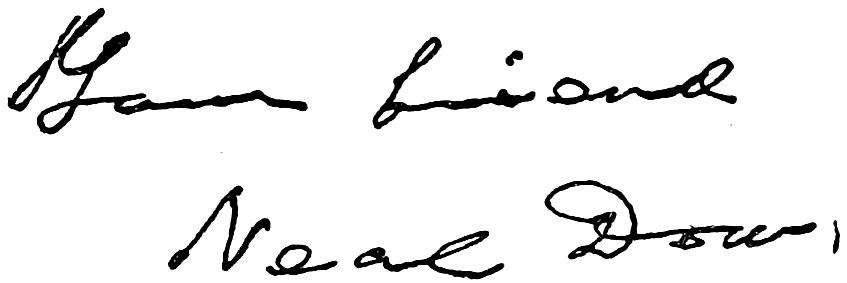 Your friend
Neal Dow.